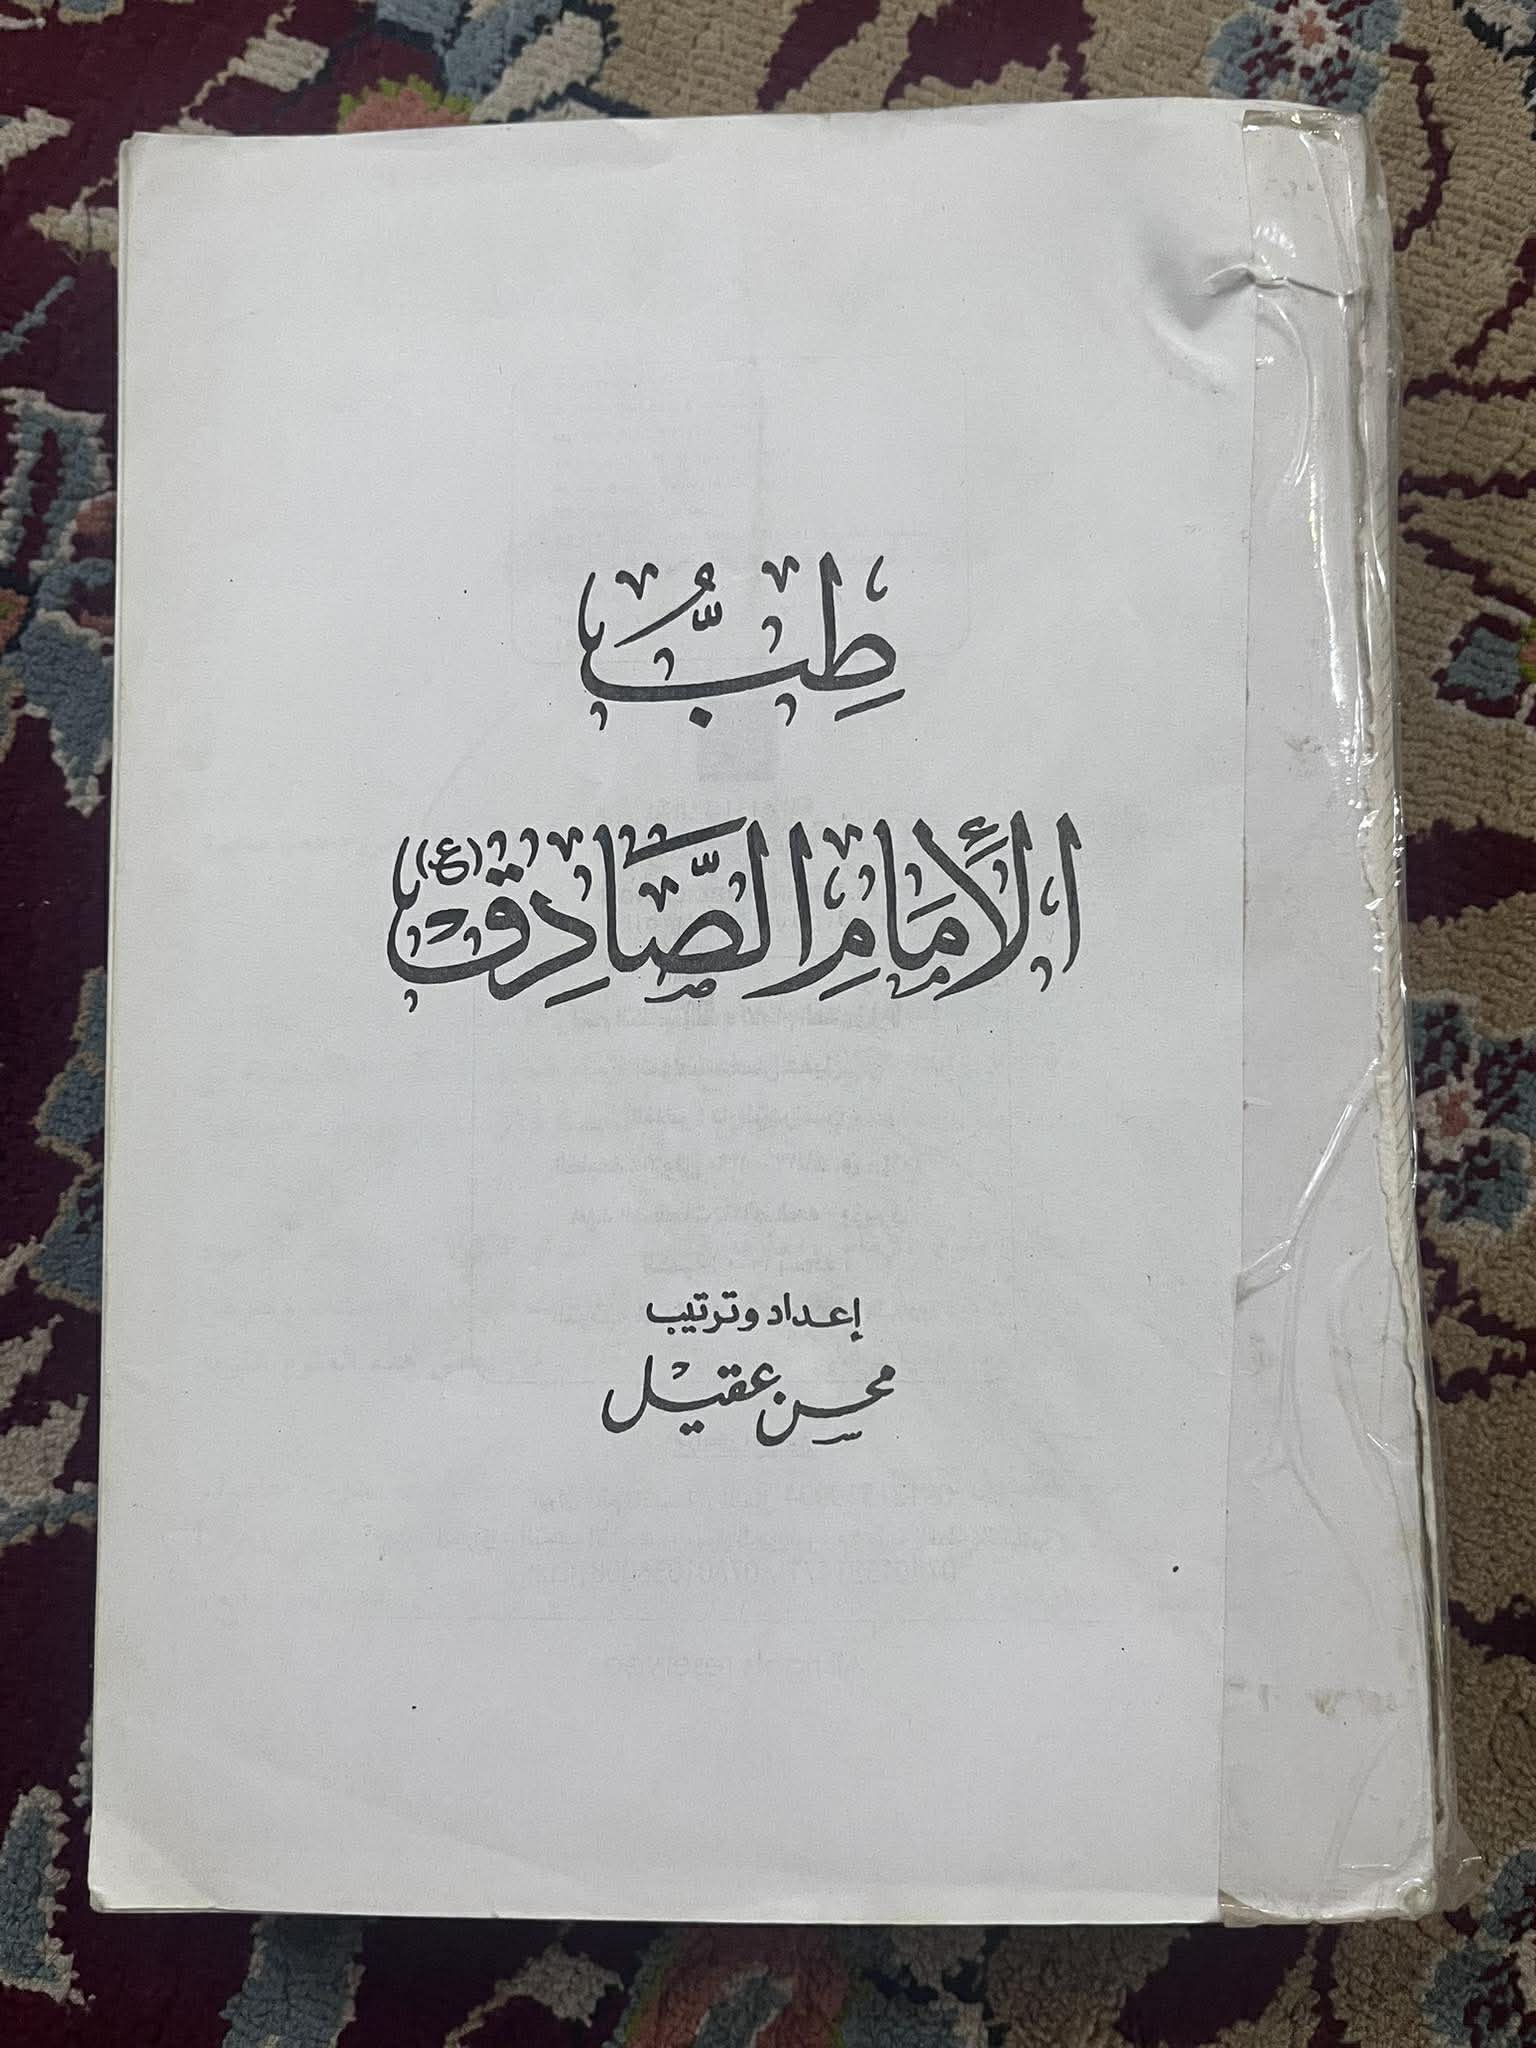 طِبُّ
الإمَامِ الصَّادِق (ع)
إعداد وترتيب
محسن عقيل